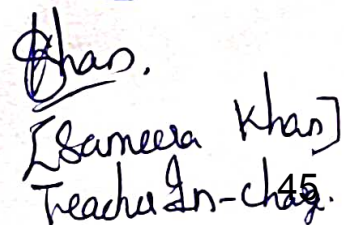 Khan.
[Sameera Khan]
Teacher In-charge.
45